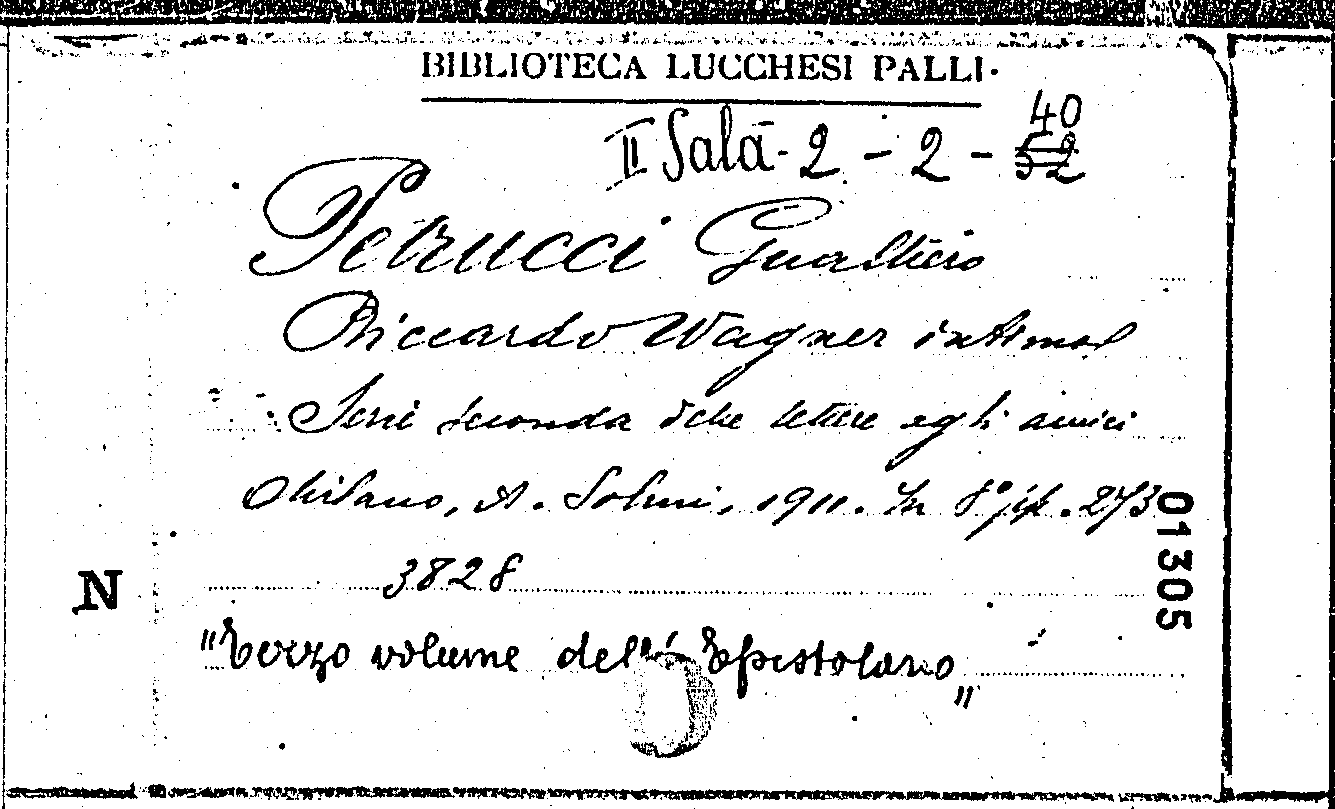 BIBLIOTECA LUCCHESI PALLI.
II Sala - 2 - 2 - 52
40
Petrucci Gualtiero
Riccardo Wagner intimo
Serie seconda delle lettere agli amici
Milano, A. Solmi, 1911. In 8° pp. 273
3828
N
01305
"Terzo volume dell'Epistolario"